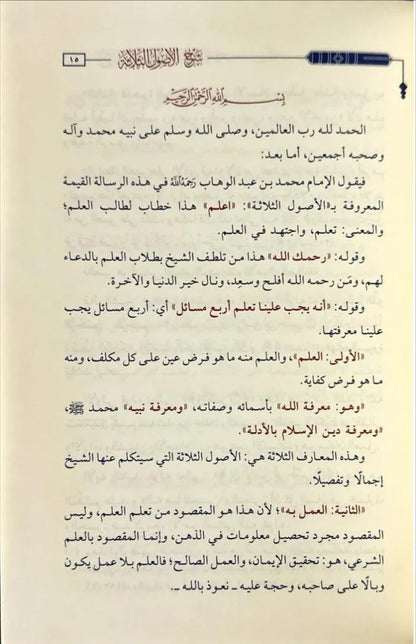 شرح الأصول الثلاثة
١٥
بسم الله الرحمن الرحيم
الحمد لله رب العالمين، وصلى الله وسلم على نبيه محمد وآله
وصحبه أجمعين، أما بعد:
فيقول الإمام محمد بن عبد الوهاب رَحِمَهُ اللهُ في هذه الرسالة القيمة
المعروفة بـ«الأصول الثلاثة»: «اعلم» هذا خطاب لطالب العلم؛
والمعنى: تعلم، واجتهد في العلم.
وقوله: «رحمك الله» هذا من تلطف الشيخ بطلاب العلم بالدعاء
لهم، ومَن رحمه الله أفلح وسعِد، ونال خير الدنيا والآخرة.
وقوله: «أنه يجب علينا تعلم أربع مسائل» أي: أربع مسائل يجب
علينا معرفتها.
«الأولى: العلم»، والعلم منه ما هو فرض عين على كل مكلف، ومنه
ما هو فرض كفاية.
«وهو: معرفة الله» بأسمائه وصفاته، «ومعرفة نبيه» محمد ﷺ،
«ومعرفة دين الإسلام بالأدلة».
وهذه المعارف الثلاثة هي: الأصول الثلاثة التي سيتكلم عنها الشيخ
إجمالًا وتفصيلًا.
«الثانية: العمل به»؛ لأن هذا هو المقصود من تعلم العلم، وليس
المقصود مجرد تحصيل معلومات في الذهن، وإنما المقصود بالعلم
الشرعي، هو: تحقيق الإيمان، والعمل الصالح؛ فالعلم بلا عمل يكون
وبالًا على صاحبه، وحجة عليه ـ نعوذ بالله ـ.